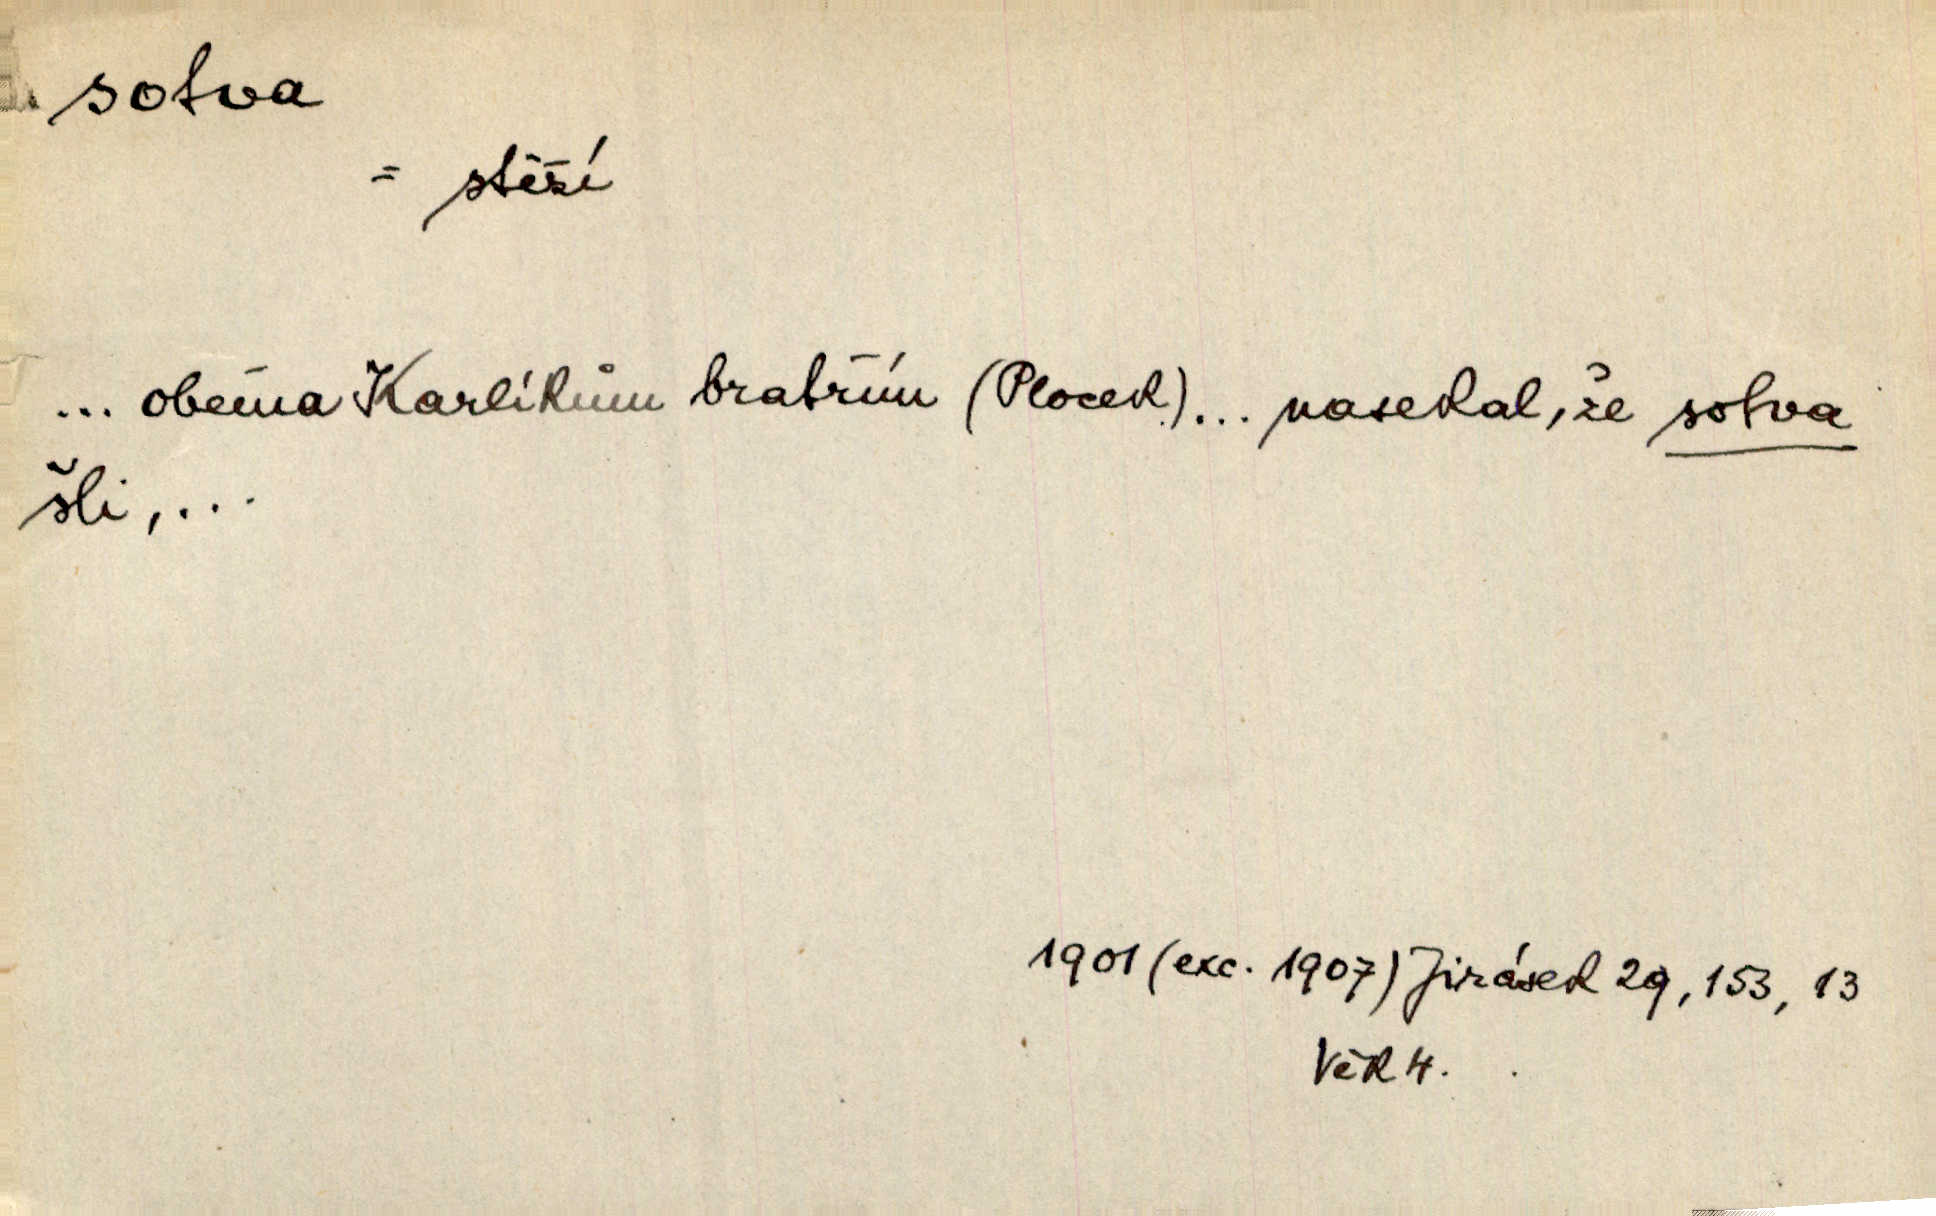 sotva
= stěží
... oběma Karlíkům bratřím (Plocek)... nasekal, že sotva
šli, ...
1901 (exc. 1907) Jirásek 29, 153, 13
Věk 4.